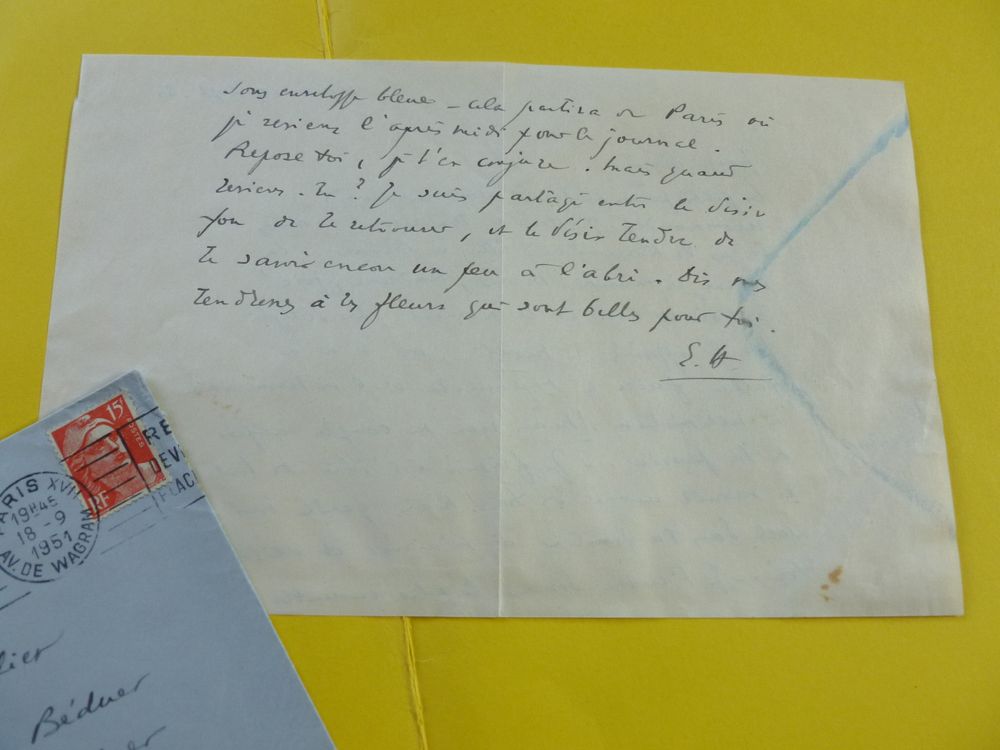 sous enveloppe bleue – cela partira de Paris où
je reviens l'après midi pour le journal.
Repose toi, je t'en conjure. Mais quand
reviens-tu ? Je suis partagé entre le désir
fou de te retrouver, et le désir tendre de
te savoir encore un peu à l'abri. Dis mes
tendresses à tes fleurs qui sont belles pour toi.
E. H
15F
POSTES
RF
RE
DEV
PLAC
PARIS XVII
19H45
18-9
1951
AV. DE WAGRAM
lier
Béduer